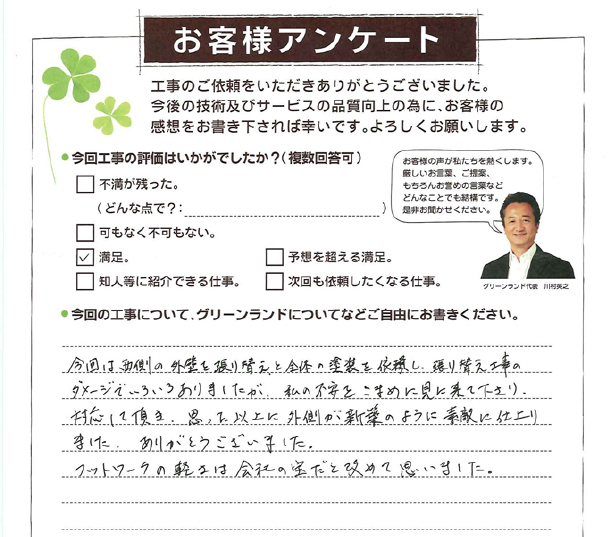 お客様アンケート
工事のご依頼をいただきありがとうございました。
今後の技術及びサービスの品質向上の為に、お客様の
感想をお書き下されば幸いです。よろしくお願いします。
●今回工事の評価はいかがでしたか？（複数回答可）
不満が残った。
（どんな点で？：                    ）
可もなく不可もない。
満足。
予想を超える満足。
知人等に紹介できる仕事。
次回も依頼したくなる仕事。
お客様の声が私たちを熱くします。
厳しいお言葉、ご提案、
もちろんお誉めの言葉など
どんなことでも結構です。
是非お聞かせください。
グリーンランド代表 川村英之
●今回の工事について、グリーンランドについてなどご自由にお書きください。
今回は西側の外壁を張り替えと全体の塗装を依頼し、張り替え工事の
ダメージでいろいろありましたが、私の不安をこまめに見に来て下さり、
対応して頂き、思った以上に外側が新築のように素敵に仕上り
ました。ありがとうございました。
フットワークの軽さは会社の宝だと改めて思いました。